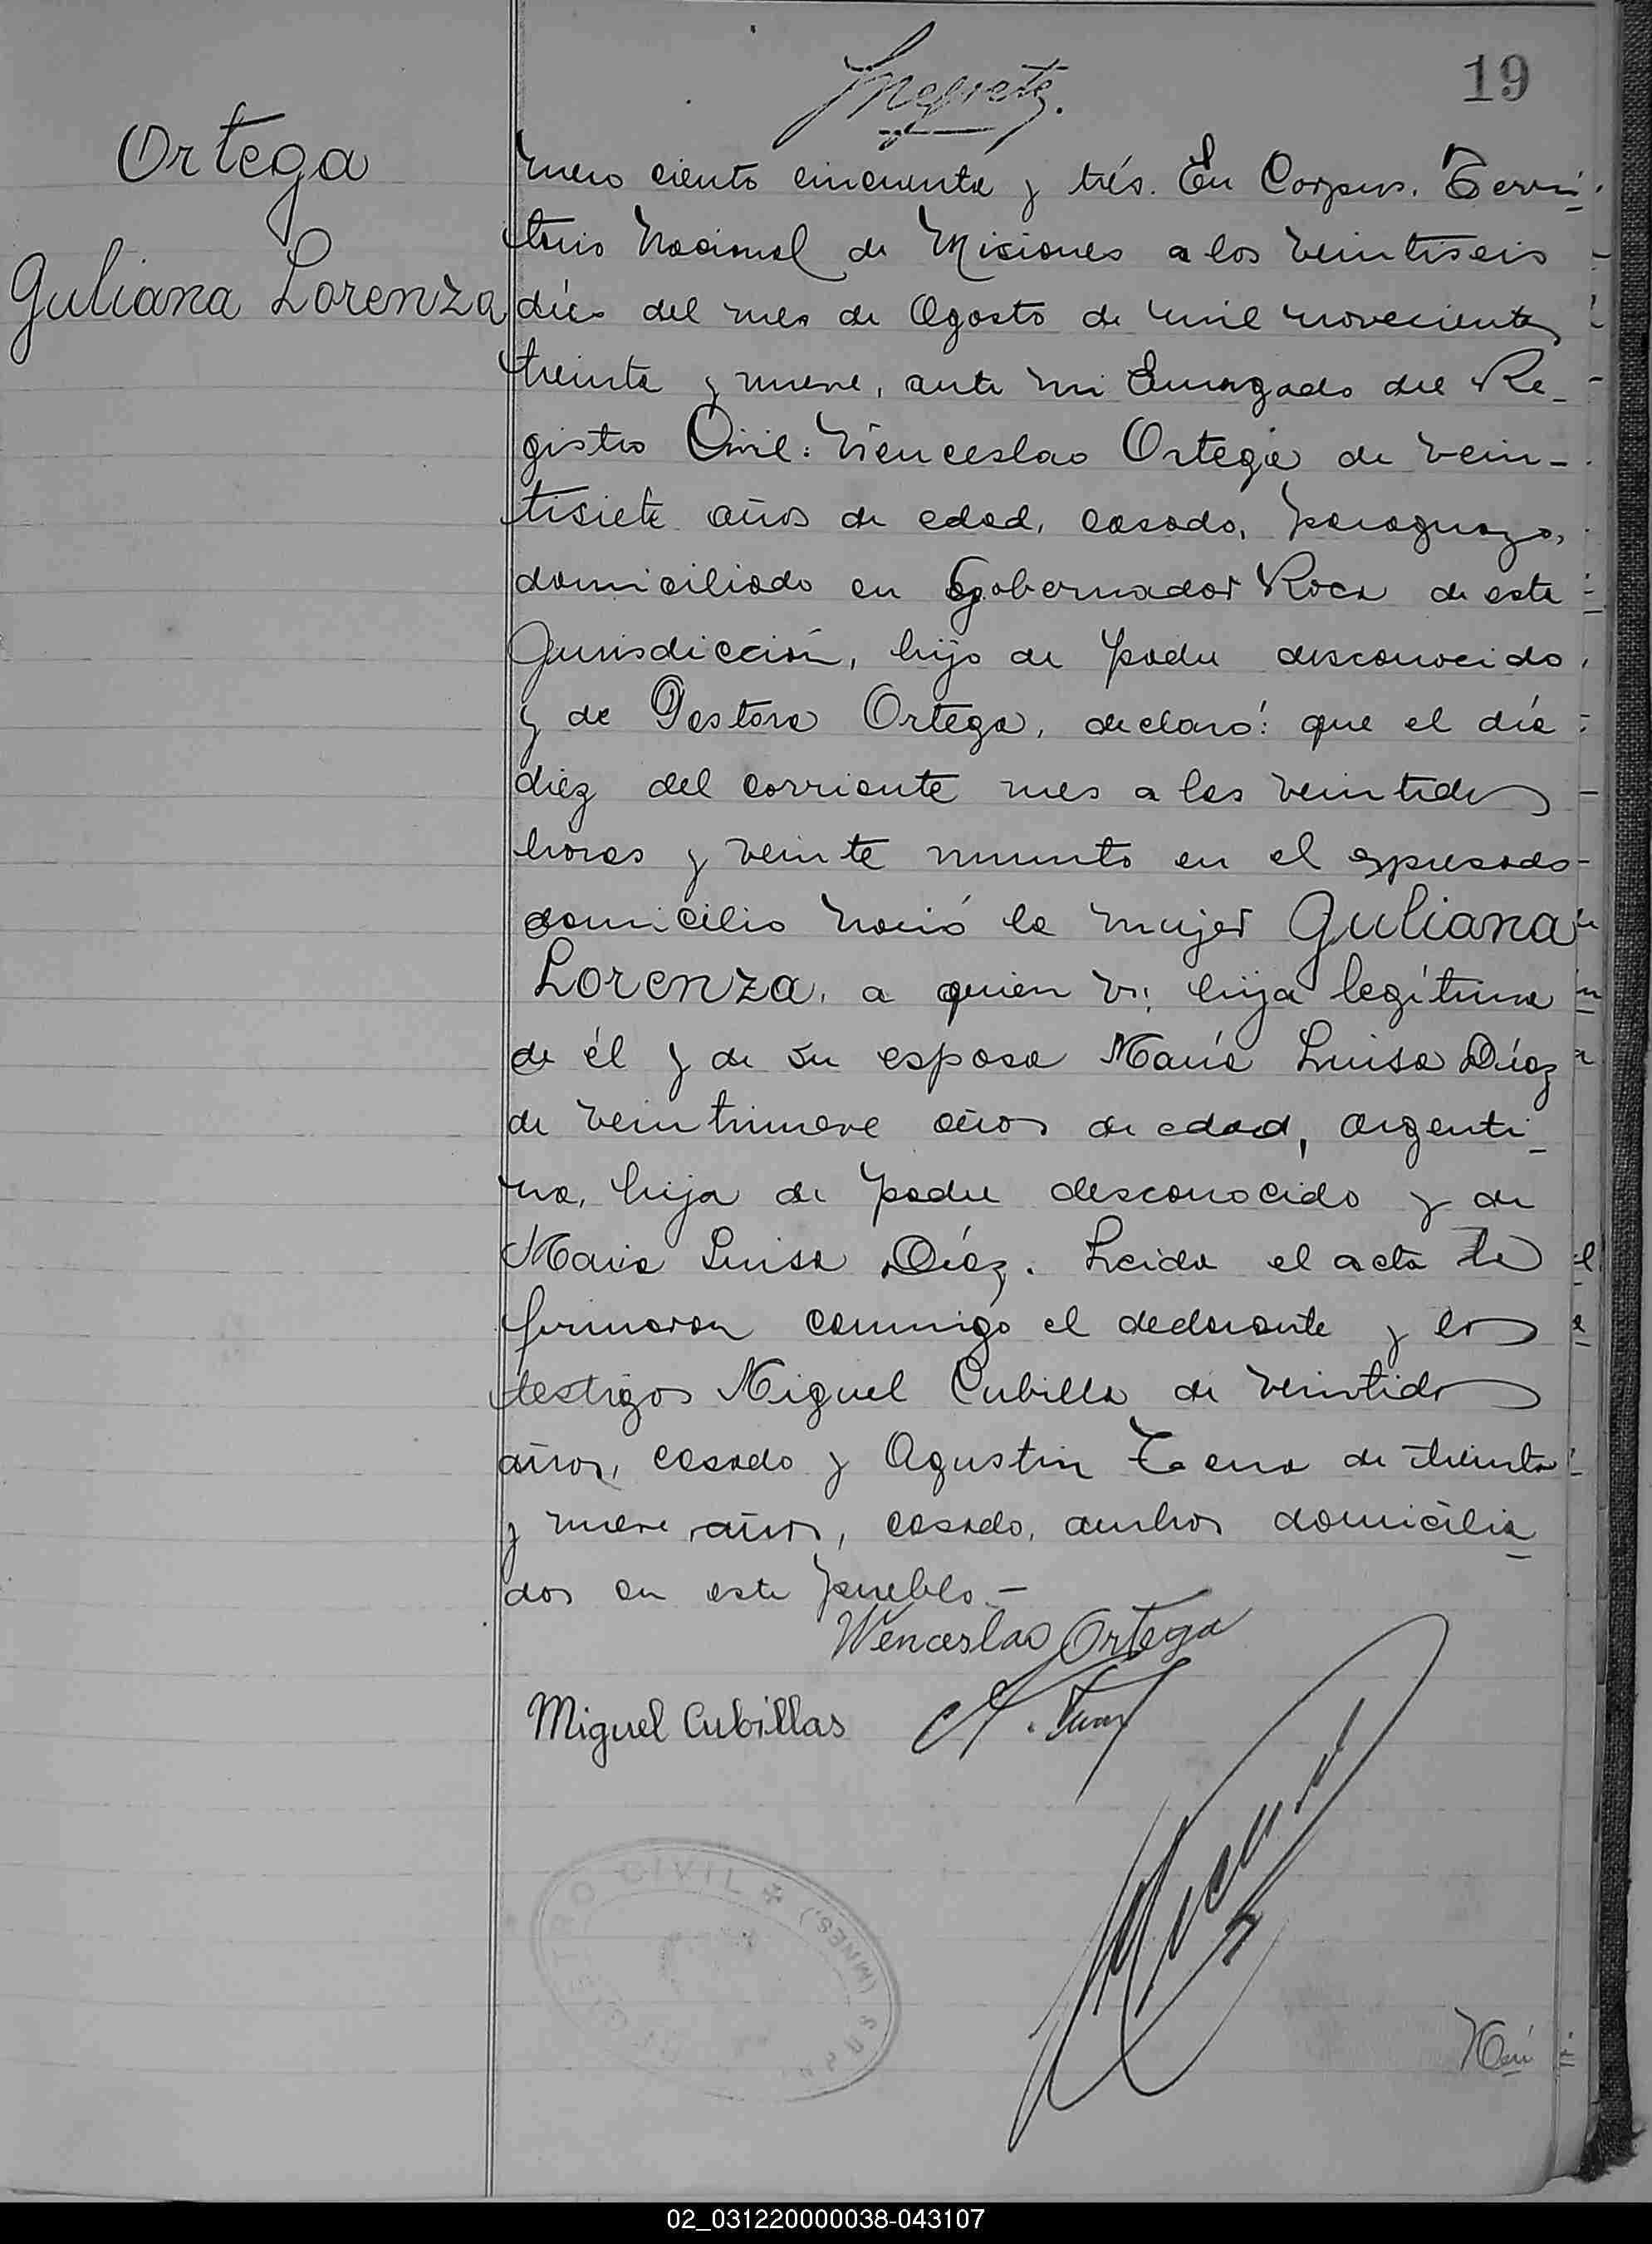 19
Ortega
Juliana Lorenza
mero ciento cincuenta y trés. En Corpus. Terri
torio Nacional de Misiones a los veintiseis
días del mes de Agosto de mil novecientos
treinta y nueve, ante mi Encargado del Re-
gistro Civil: Wenceslao Ortega de vein-
tisiete años de edad, casado, paraguayo,
domiciliado en Gobernador Roca de esta
Jurisdicción, hijo de padre desconocido
y de Pastora Ortega, declaró: que el día
diez del corriente mes a las veintidos
horas y veinte minutos en el expresado
domicilio nació la mujer Juliana
Lorenza, a quien vi; hija legítima
de él y de su esposa María Luisa Díaz
de veintinueve años de edad, argenti
na, hija de padre desconocido y de
Maria Luisa Díaz. Leida el acta la
firmaron conmigo el declarante y los
testigos Miguel Cubilla de veintidos
años, casado y Agustin de treinta
y nueve años, casado, ambos domicilia
dos en este pueblo.-
Wenceslao Ortega
Miguel Cubillas
REGISTRO CIVIL * (MNES.)
Nú
02_031220000038-043107